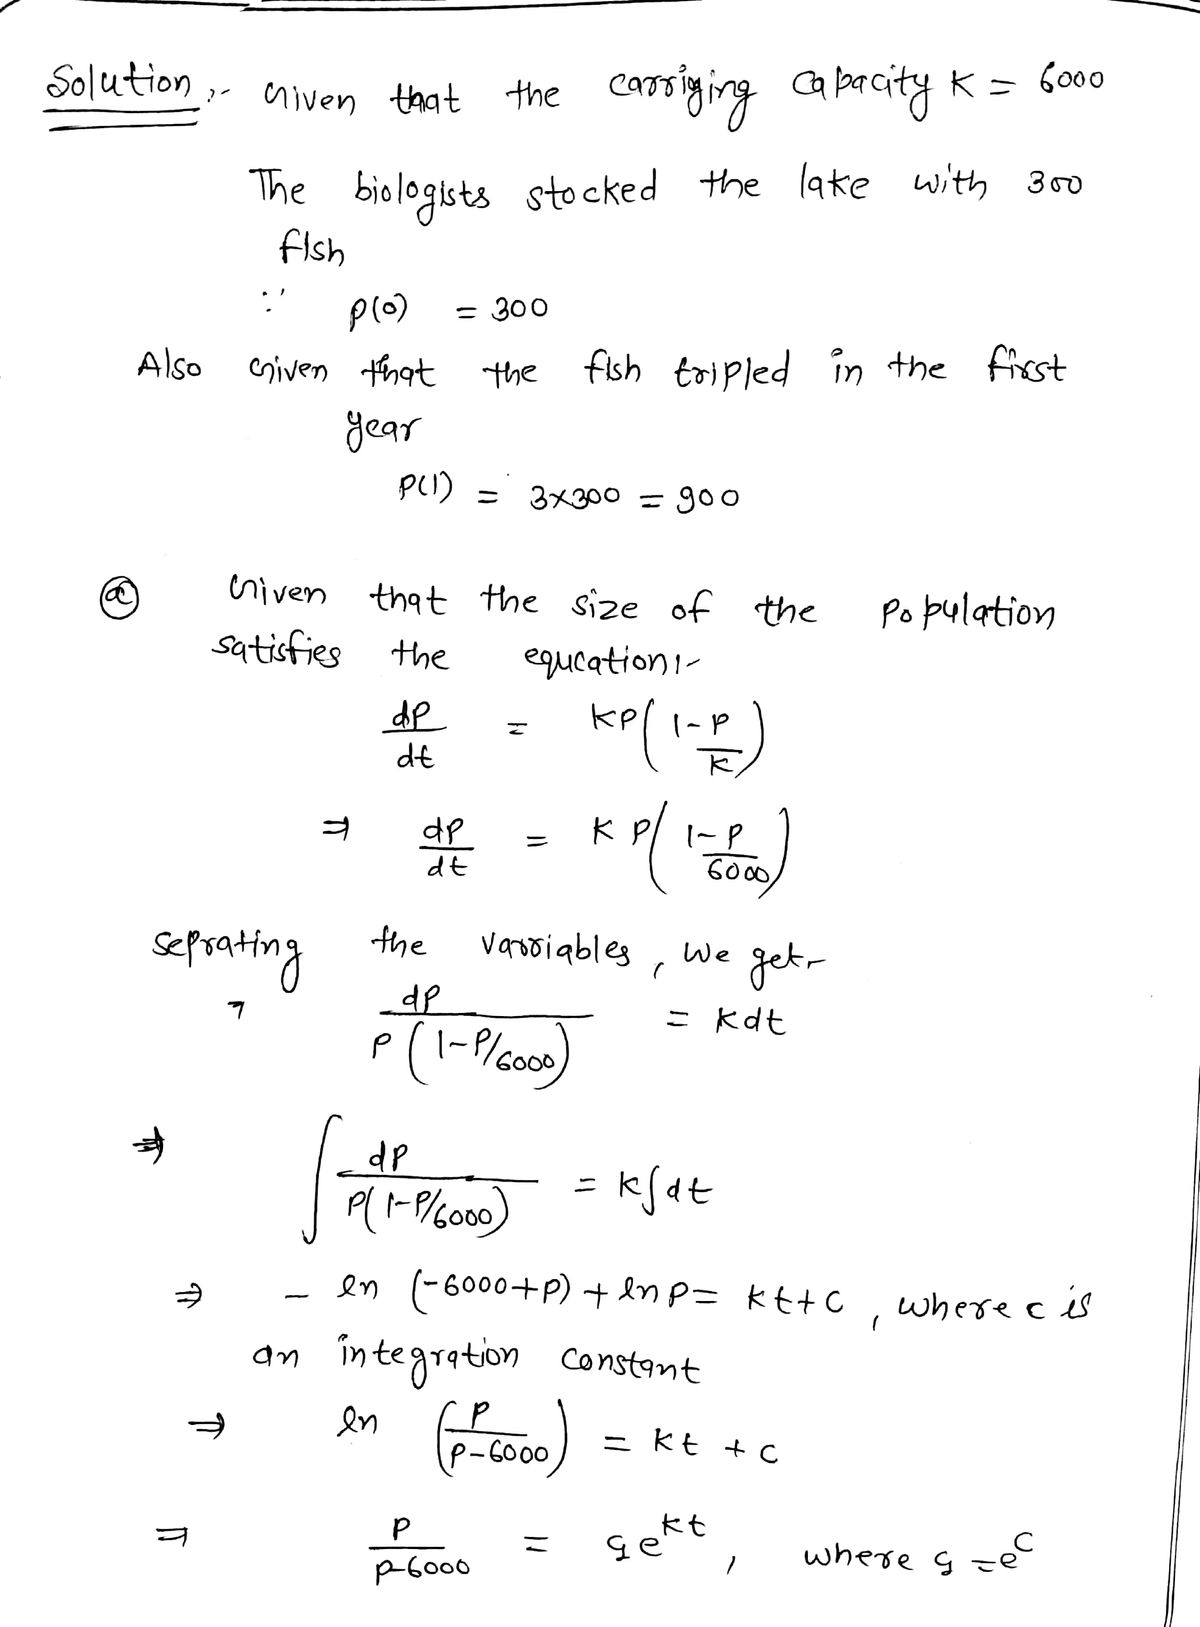 Solution :- Given that the carriging capacity K = 6000
The biologists stocked the lake with 300
fish
∵ p(0) = 300
Also Given that the fish tripled in the first
year
P(1) = 3×300 = 900
(a) Given that the size of the population
satisfies the equcation :-
dP/dt = KP(1-P/K)
⇒ dP/dt = KP(1-P/6000)
seprating the varriables, we get -
⇒ dP/(P(1-P/6000)) = kdt
⇒ ∫ dP/(P(1-P/6000)) = k∫dt
⇒ - ln (-6000+P) + ln P = kt+C, where c is
an integration constant
⇒ ln (P/(P-6000)) = kt + c
⇒ P/(P-6000) = C₁e^kt, where C₁ = e^C